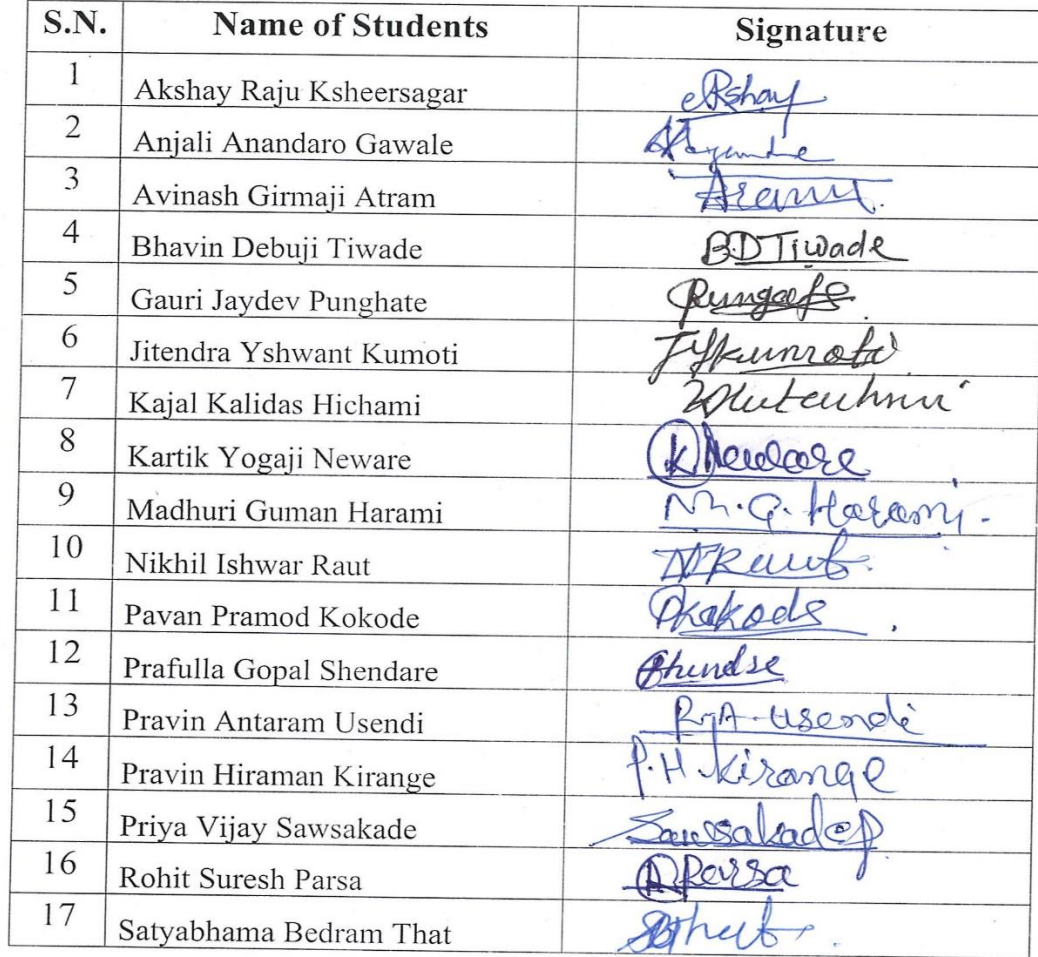 S.N. Name of Students Signature
1 Akshay Raju Ksheersagar Akshay
2 Anjali Anandaro Gawale
3 Avinash Girmaji Atram
4 Bhavin Debuji Tiwade B.D Tiwade
5 Gauri Jaydev Punghate
6 Jitendra Yshwant Kumoti
7 Kajal Kalidas Hichami
8 Kartik Yogaji Neware K Neware
9 Madhuri Guman Harami M.G. Harami.
10 Nikhil Ishwar Raut NIRaut.
11 Pavan Pramod Kokode Pkokode.
12 Prafulla Gopal Shendare
13 Pravin Antaram Usendi P.A. Usendi
14 Pravin Hiraman Kirange P.H. Kirange
15 Priya Vijay Sawsakade SawsakadeP
16 Rohit Suresh Parsa R Parsa
17 Satyabhama Bedram That